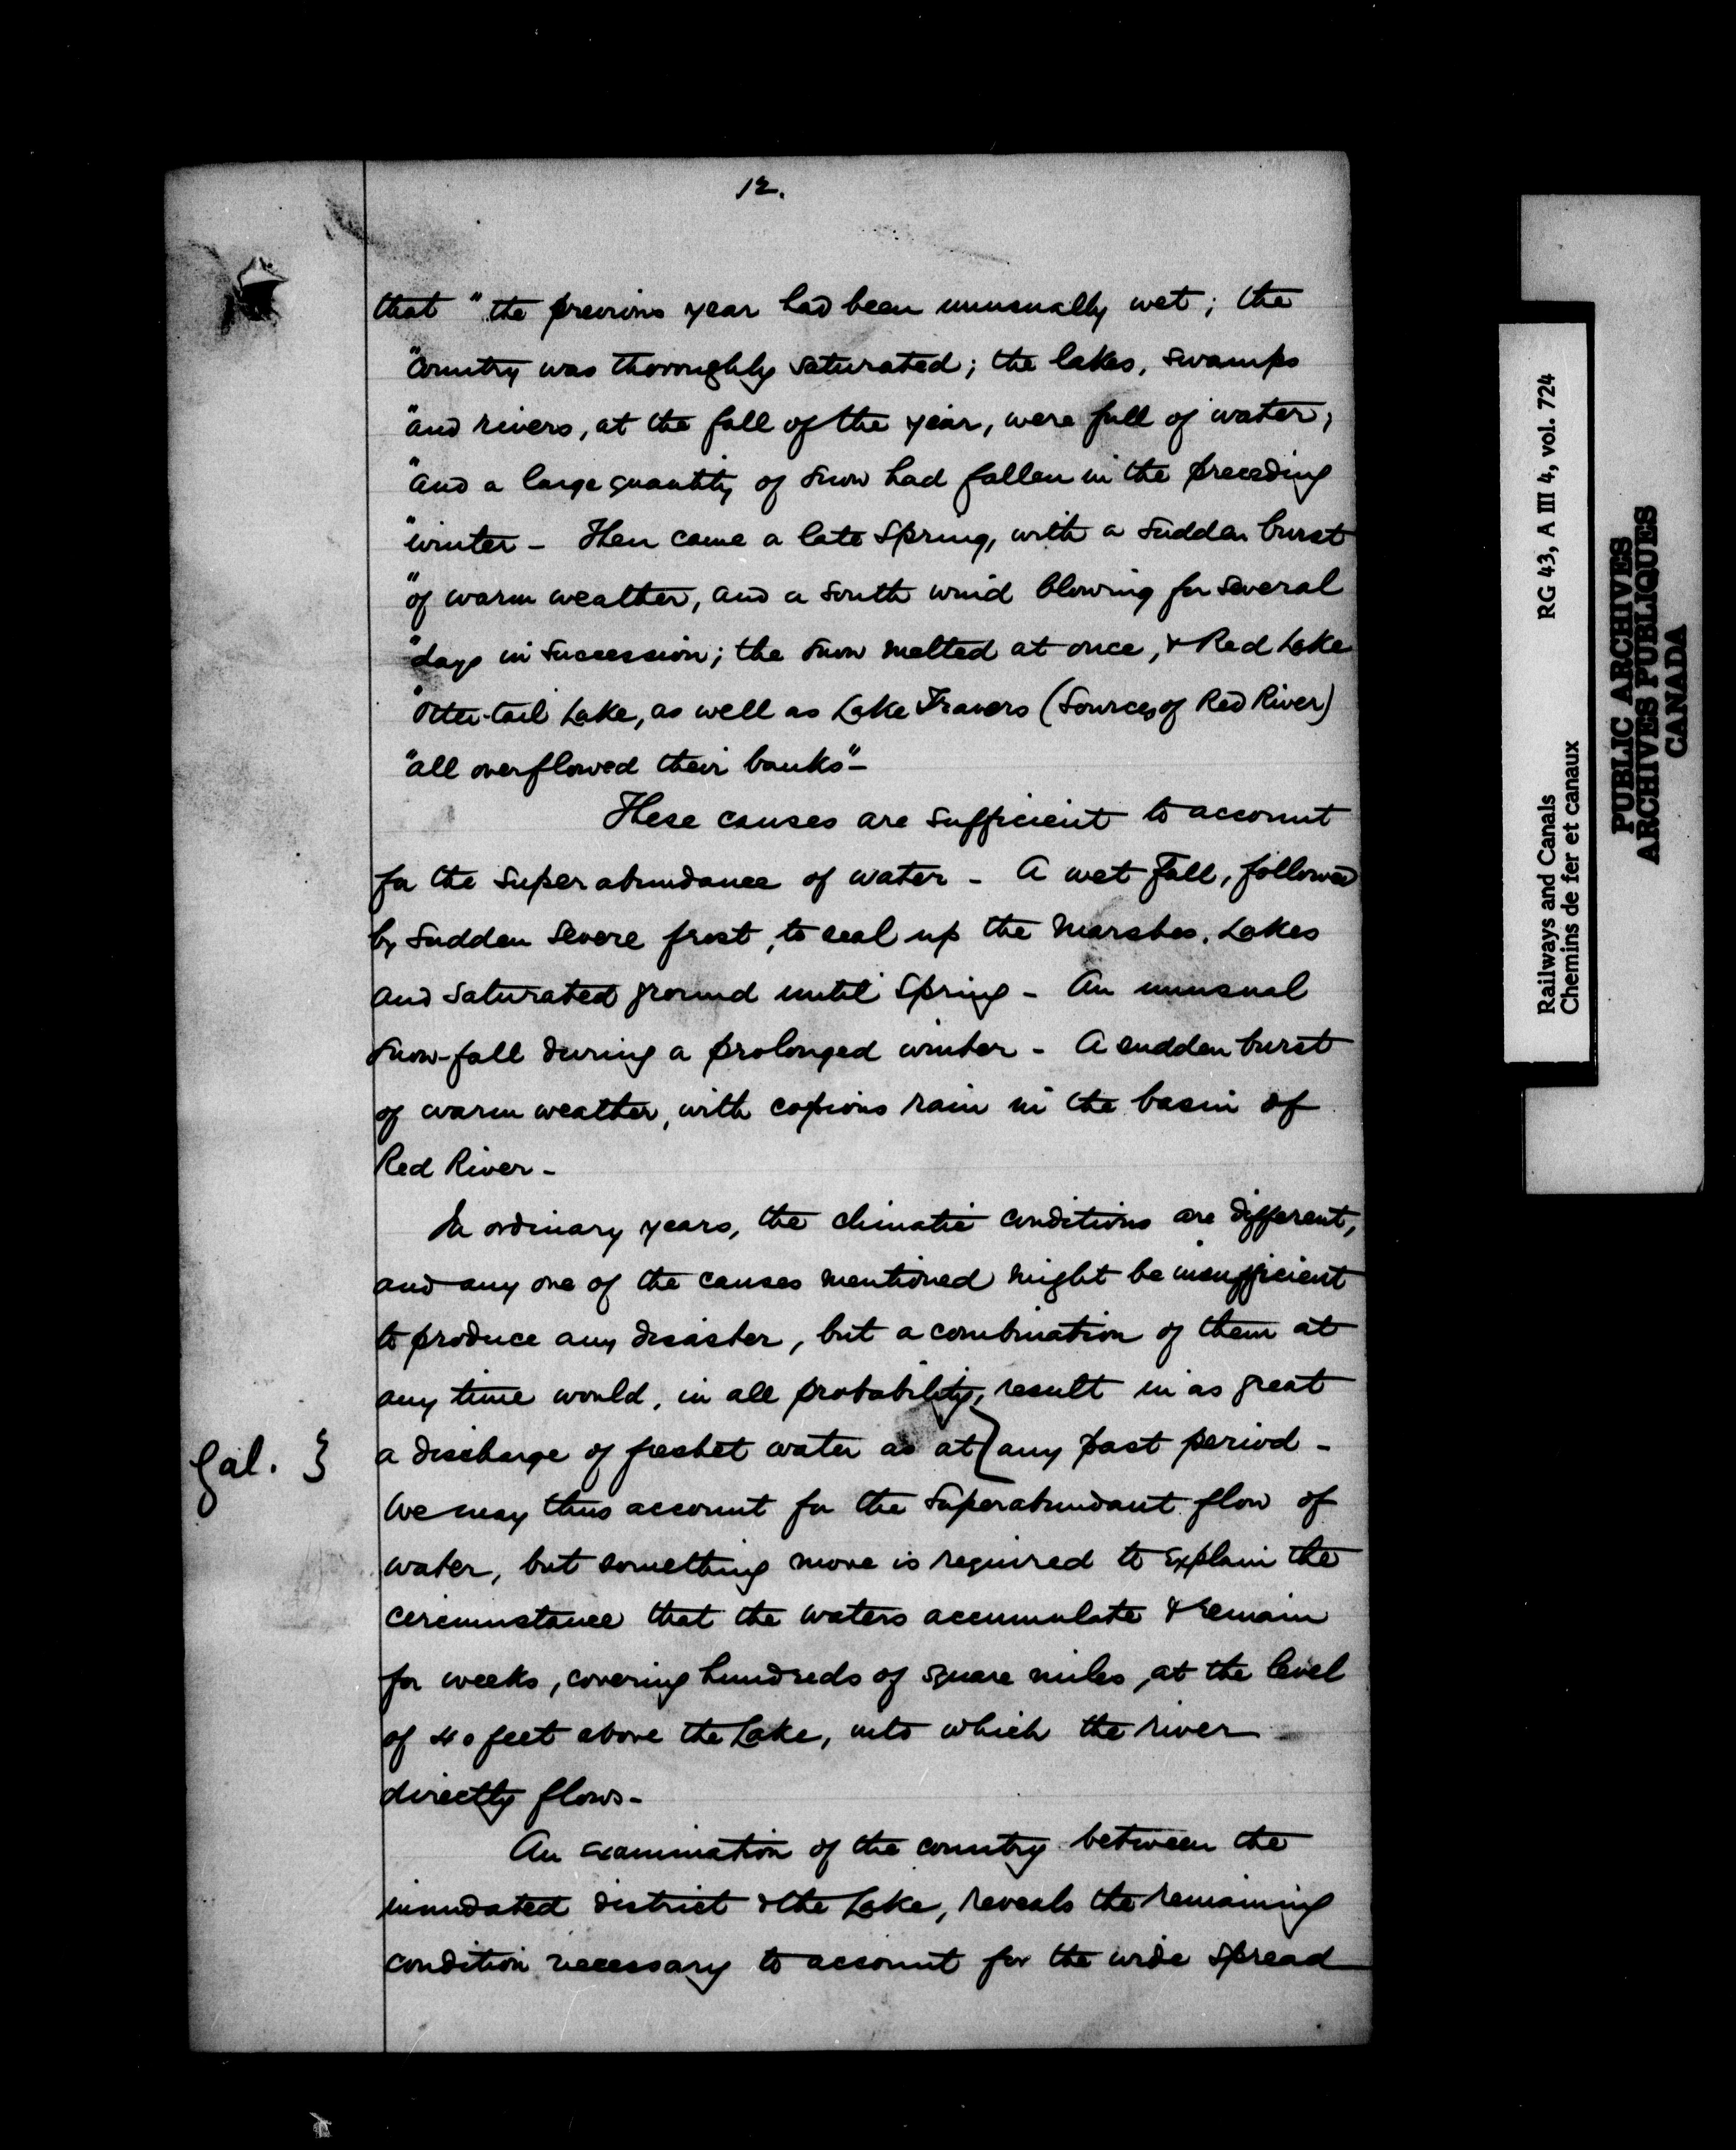 12.
that "the previous year had been unusually wet; the
"country was thoroughly saturated; the lakes, swamps
"and rivers, at the fall of the year, were full of water;
"and a large quantity of snow had fallen in the preceding
"winter - Then came a late Spring, with a sudden burst
"of warm weather, and a south wind blowing for several
"days in succession; the snow melted at once, & Red Lake
"Otter-tail Lake, as well as Lake Travers (Sources of Red River)
"all overflowed their banks" -
These causes are sufficient to account
for the superabundance of water - A wet Fall, followed
by sudden severe frost, to seal up the marshes, Lakes
and saturated ground until Spring - An unusual
snow-fall during a prolonged winter - A sudden burst
of warm weather, with copious rain in the basin of
Red River -
In ordinary years, the climatic conditions are different,
and any one of the causes mentioned might be insufficient
to produce any disaster, but a combination of them at
any time would, in all probability, result in as great
Gal. } a discharge of freshet water as at } any past period -
We may thus account for the superabundant flow of
water, but something more is required to explain the
circumstance that the waters accumulate & remain
for weeks, covering hundreds of square miles, at the level
of 40 feet above the Lake, into which the river
directly flows -
An examination of the country between the
inundated district & the Lake, reveals the remaining
condition necessary to account for the wide spread
Railways and Canals RG 43, A III 4, vol. 724
Chemins de fer et canaux
PUBLIC ARCHIVES
ARCHIVES PUBLIQUES
CANADA